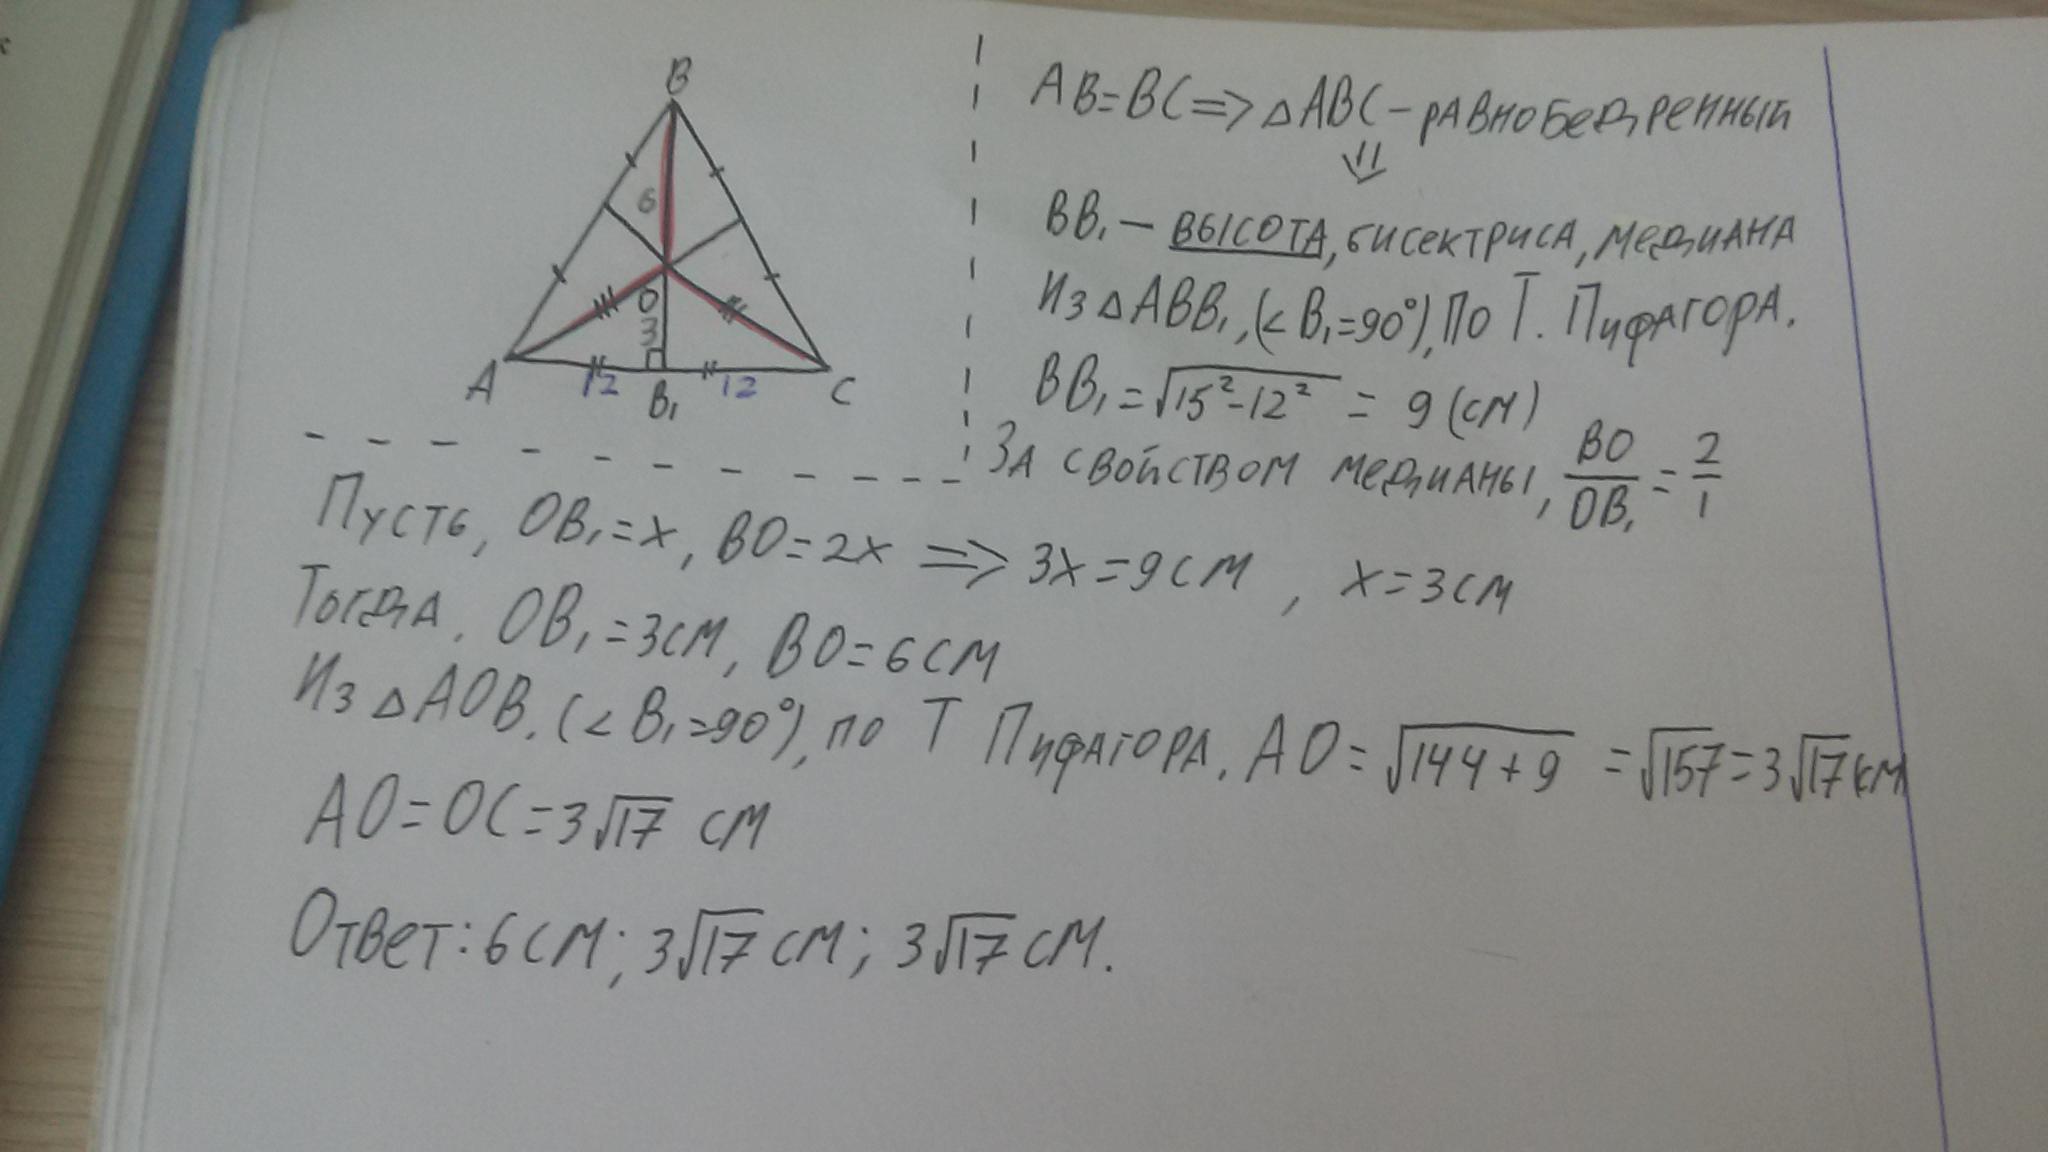 B
6
O
3
A
12
12
C
B₁
AB=BC=>△ABC-равнобедренный
BB₁ — высота, бисектриса, медиана
Из △ABB₁, (<B₁=90°), по Т. Пифагора.
BB₁=√15²-12² = 9 (см)
За свойством медианы, BO/OB₁ = 2/1
Пусть, OB₁=x, BO=2x => 3x=9см, x=3см
Тогда, OB₁=3см, BO=6см
Из △AOB, (<B₁=90°), по Т Пифагора, AO=√144+9 =√157=3√17 см
AO=OC=3√17 см
Ответ: 6см; 3√17 см; 3√17 см.